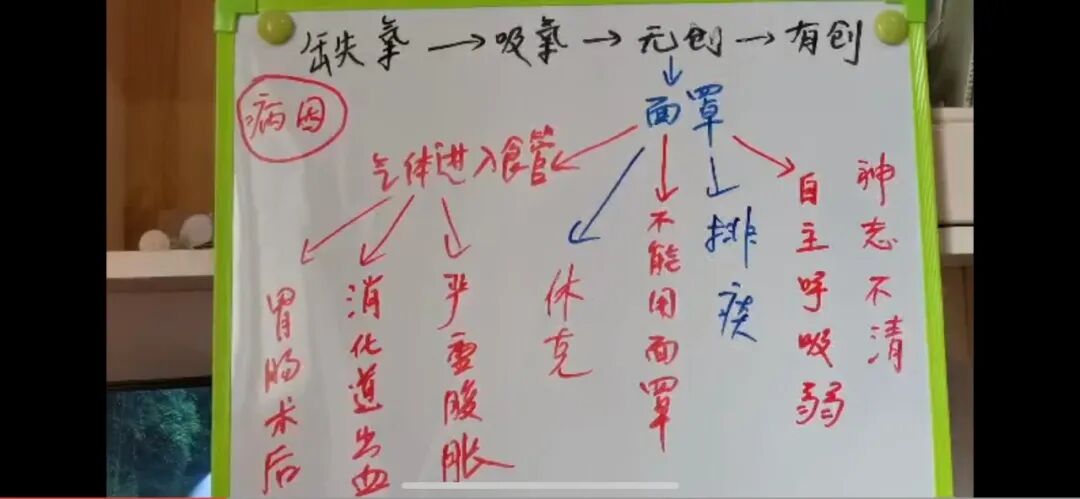 缺失氧→吸氧→无创→有创
病因
面罩
气体进入食管
胃肠术后
消化道出血
严重腹胀
休克
不能用面罩
排痰
自主呼吸弱
神志不清